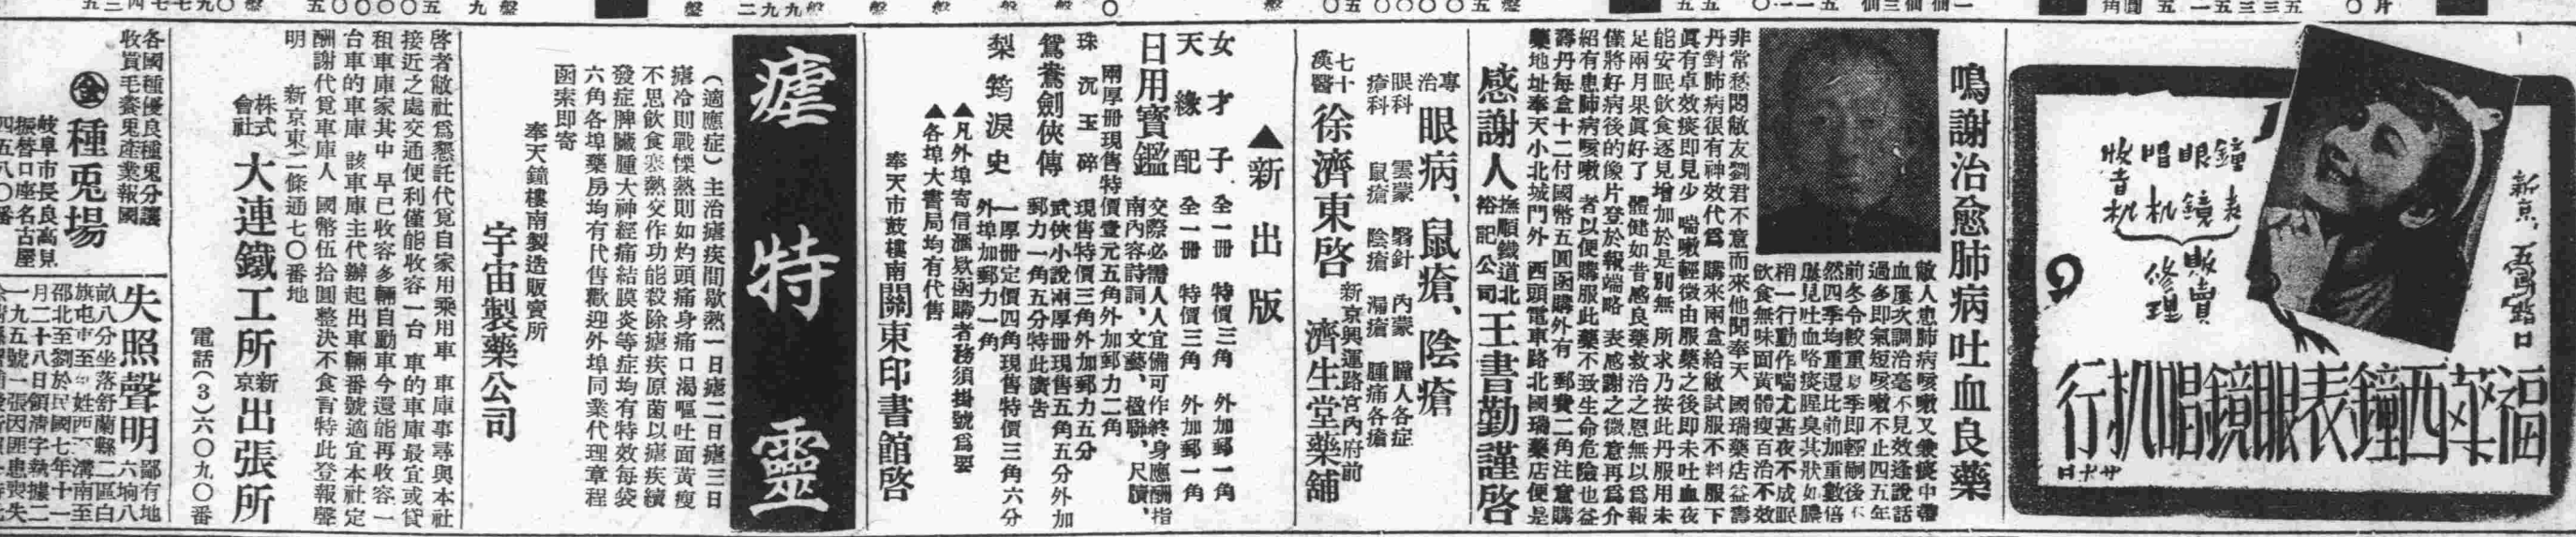 新京 五馬路口
鐘表
眼鏡
唱机
收音机
販賣
修理
福英西鐘表眼鏡唱机行
鳴謝治愈肺病吐血良藥
敝人患肺病咳嗽又兼痰中帶
血屢次調治毫不見效逢說話
過多即氣短咳嗽不止四五年
前冬令較重夏季即輕嗣後不
然四季均重還比前加重數倍
屢見吐血咯痰腥臭其狀如膿
稍一行動作喘尤甚夜不成眠
飲食無味面黃體瘦百治不效
非常愁悶敝友劉君不意而來他聞奉天 國瑞藥店益壽
丹對肺病很有神效代爲 購來兩盒給敝試服不料服下
眞有卓效痰即見少 喘嗽輕微由服藥之後即未吐血夜
能安眠飲食逐見增加於是別無 所求乃按此丹服用未
足兩月果眞好了 體健如昔感良藥救治之恩無以爲報
僅將好病後的像片登於報端略 表感謝之微意再爲介
紹有患肺病咳嗽 者以便購服此藥不致生命危險也益
壽丹每盒十二付國幣五圓函購外有 郵費二角注意購
藥地址奉天小北城門外 西頭電車路北國瑞藥店便是
感謝人 撫順鐵道北裕記公司 王書勤謹啓
專治 眼病、鼠瘡、陰瘡
眼科 雲蒙 翳針 內蒙 瞳人各症
瘡科 鼠瘡 陰瘡 漏瘡 腫痛各瘡
七十漢醫 徐濟東啓 新京興運路宮內府前 濟生堂藥舖
▲新出版
女才子 全一冊 特價三角 外加郵一角
天緣配 全一冊 特價三角 外加郵一角
日用寶鑑 交際必需人人宜備可作終身應酬指
南內容詩詞、文藝、楹聯、尺牘、
兩厚冊現售特價壹元五角外加郵力二角
珠沉玉碎 現售特價三角外加郵力五分
鴛鴦劍俠傳 武俠小說兩厚冊現售五角五分外加
郵力一角五分特此廣告
梨筠淚史 一厚冊定價四角現售特價三角六分
外埠加郵力一角
▲凡外埠寄信滙欵函購者務須掛號爲要
▲各埠大書局均有代售
奉天市鼓樓南關東印書館啓
瘧特靈
（適應症）主治瘧疾間歇熱一日瘧二日瘧三日
瘧冷則戰慄熱則如灼頭痛身痛口渴嘔吐面黃瘦
不思飲食寒熱交作功能殺除瘧疾原菌以瘧疾續
發症脾臟腫大神經痛結膜炎等症均有特效每袋
六角各埠藥房均有代售歡迎外埠同業代理章程
函索即寄
奉天鐘樓南製造販賣所
宇宙製藥公司
啓者敝社爲懇託代覓自家用乘用車 車庫事尋與本社
接近之處交通便利僅能收容一台 車的車庫最宜或貸
租車庫家其中 早已收容多輛自動車今還能再收容一
台車的車庫 該車庫主代辦起出車輛番號適宜本社定
酬謝代覓車庫人 國幣伍拾圓整決不食言特此登報聲
明 新京東二條通七〇番地
株式會社 大連鐵工所新京出張所
電話（3）六〇九〇番
各國種優良種兎分讓
收買毛養兎產業報國
㊎種兎場
岐阜市長良高見
振替口座名古屋
四五八〇番
失照聲明
鄙有地六垧八
畝八分坐落舒蘭縣二區白
旗屯
邵北至劉於民國七年十一
月二十八日領清字執據二
一九五號一張因匪患喪失